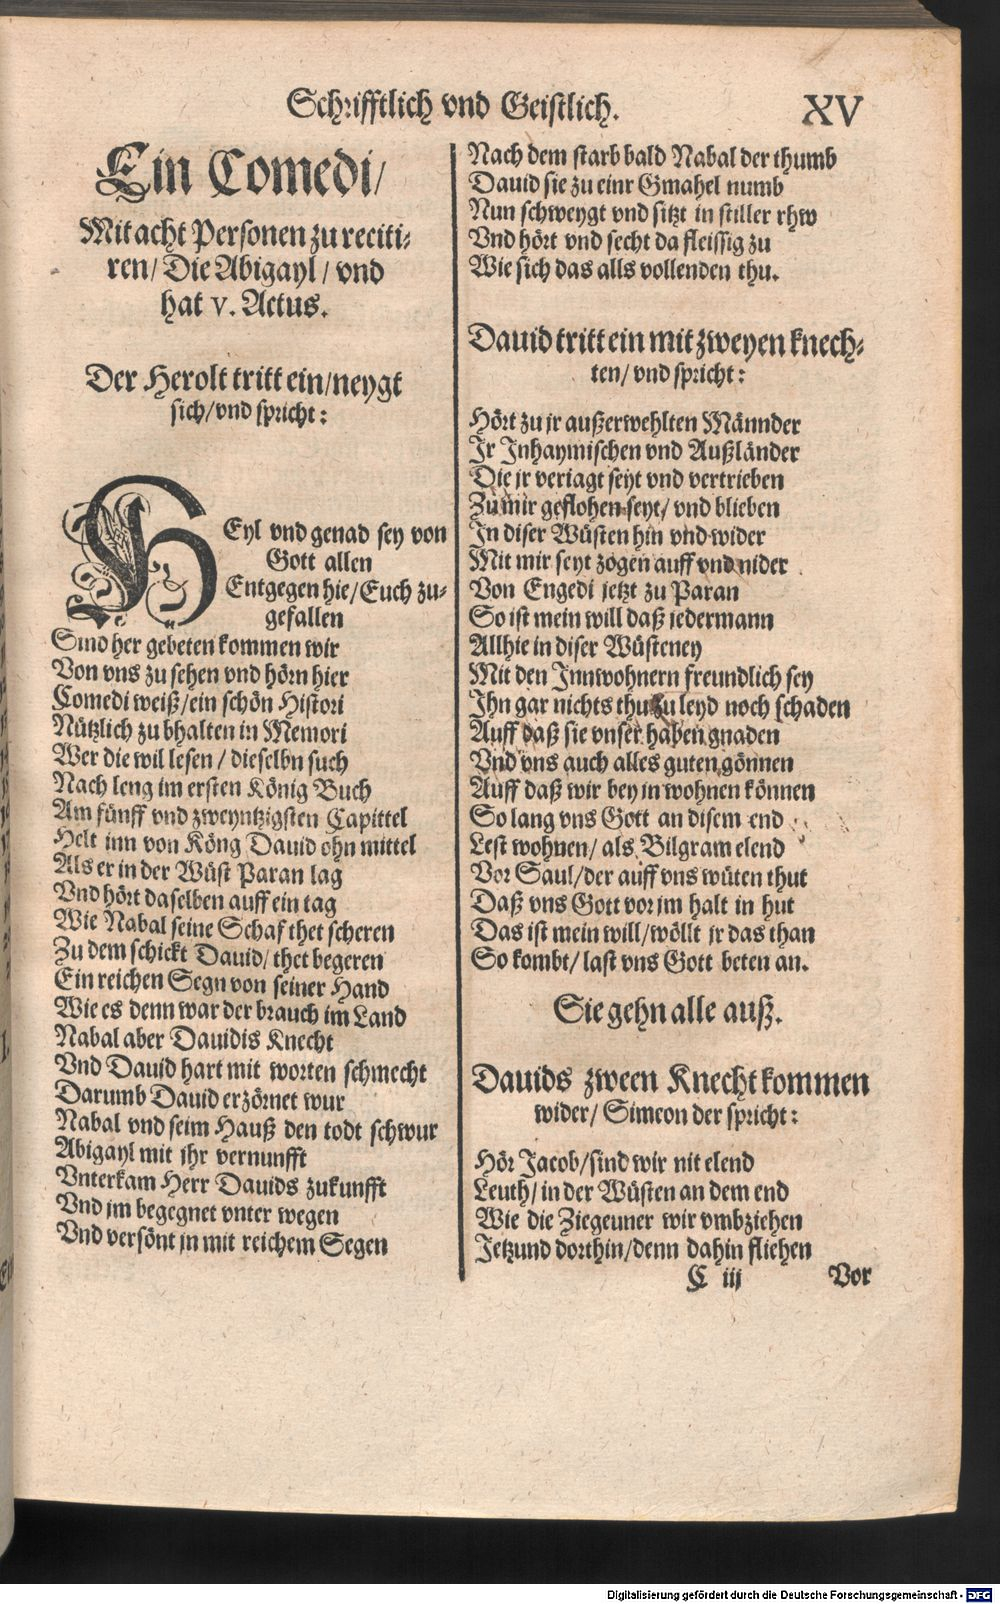 Schrifftlich vnd Geistlich. XV
Ein Comedi/
Mit acht Personen zu reciti-
ren/ Die Abigayl/ vnd
hat v. Actus.
Der Herolt tritt ein/ neygt
sich/ vnd spricht:
HEyl vnd genad sey von
Gott allen
Entgegen hie/ Euch zu-
gefallen
Sind her gebeten kommen wir
Von vns zu sehen vnd hörn hier
Comedi weiß/ ein schön Histori
Nützlich zu bhalten in Memori
Wer die wil lesen/ dieselbn such
Nach leng im ersten König Buch
Am fünff vnd zweyntzigsten Capittel
Helt inn von Köng Dauid ohn mittel
Als er in der Wüst Paran lag
Vnd hört daselben auff ein tag
Wie Nabal seine Schaf thet scheren
Zu dem schickt Dauid/ thet begeren
Ein reichen Segn von seiner Hand
Wie es denn war der brauch im Land
Nabal aber Dauidis Knecht
Vnd Dauid hart mit worten schmecht
Darumb Dauid erzörnet wur
Nabal vnd seim Hauß den todt schwur
Abigayl mit jhr vernunfft
Vnterkam Herr Dauids zukunfft
Vnd jm begegnet vnter wegen
Vnd versönt jn mit reichem Segen
Nach dem starb bald Nabal der thumb
Dauid sie zu einr Gmahel numb
Nun schweygt vnd sitzt in stiller rhw
Vnd hört vnd secht da fleissig zu
Wie sich das alls vollenden thu.
Dauid tritt ein mit zweyen knech-
ten/ vnd spricht:
Hört zu jr außerwehlten Männder
Jr Inhaymischen vnd Außländer
Die jr veriagt seyt vnd vertrieben
Zu mir geflohen seyt/ vnd blieben
In diser Wüsten hin vnd wider
Mit mir seyt zogen auff vnd nider
Von Engedi jetzt zu Paran
So ist mein will daß jedermann
Allhie in diser Wüsteney
Mit den Innwohnern freundlich sey
Ihn gar nichts thu zu leyd noch schaden
Auff daß sie vnser haben gnaden
Vnd vns auch alles guten gönnen
Auff daß wir bey jn wohnen können
So lang vns Gott an disem end
Lest wohnen/ als Bilgram elend
Vor Saul/ der auff vns wüten thut
Daß vns Gott vor jm halt in hut
Das ist mein will/ wöllt jr das than
So kombt/ last vns Gott beten an.
Sie gehn alle auß.
Dauids zween Knecht kommen
wider/ Simeon der spricht:
Hör Jacob/ sind wir nit elend
Leuth/ in der Wüsten an dem end
Wie die Ziegeuner wir vmbziehen
Jetzund dorthin/ denn dahin fliehen
C iij Vor
Digitalisierung gefördert durch die Deutsche Forschungsgemeinschaft - DFG